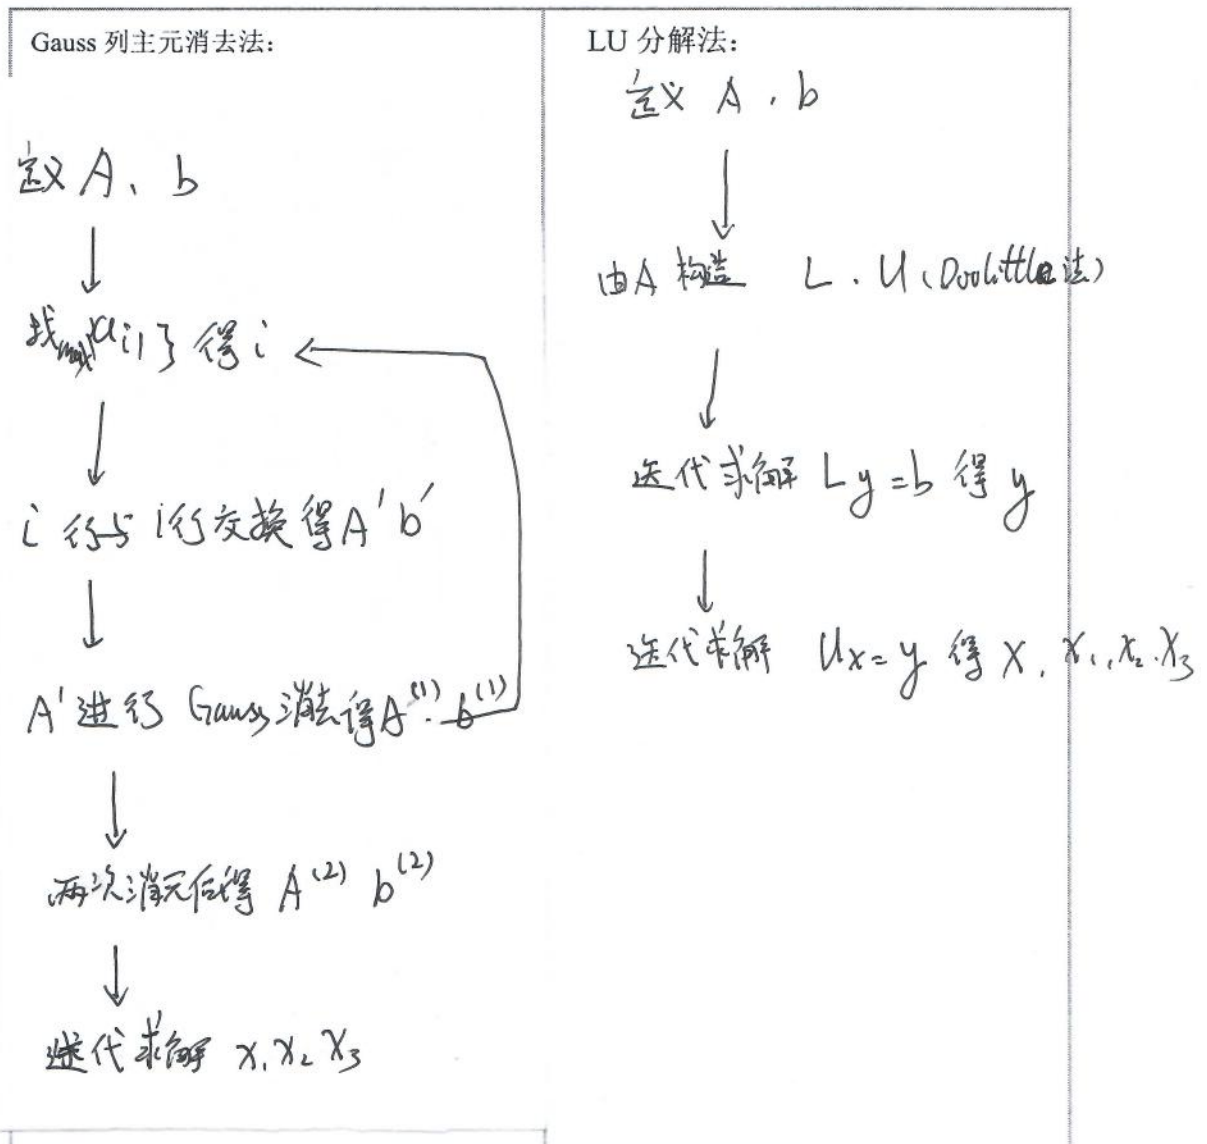 Gauss 列主元消去法:
定义 A、b
找max{ai1} 得 i
i 行与 1行交换 得A' b'
A' 进行 Gauss 消去得A⁽¹⁾. b⁽¹⁾
两次消元后得 A⁽²⁾ b⁽²⁾
迭代求解 x₁ x₂ x₃
LU 分解法:
定义 A . b
由A 构造 L . U (Doolittle法)
迭代求解 Ly=b 得 y
迭代求解 Ux=y 得 x. x₁, x₂. x₃